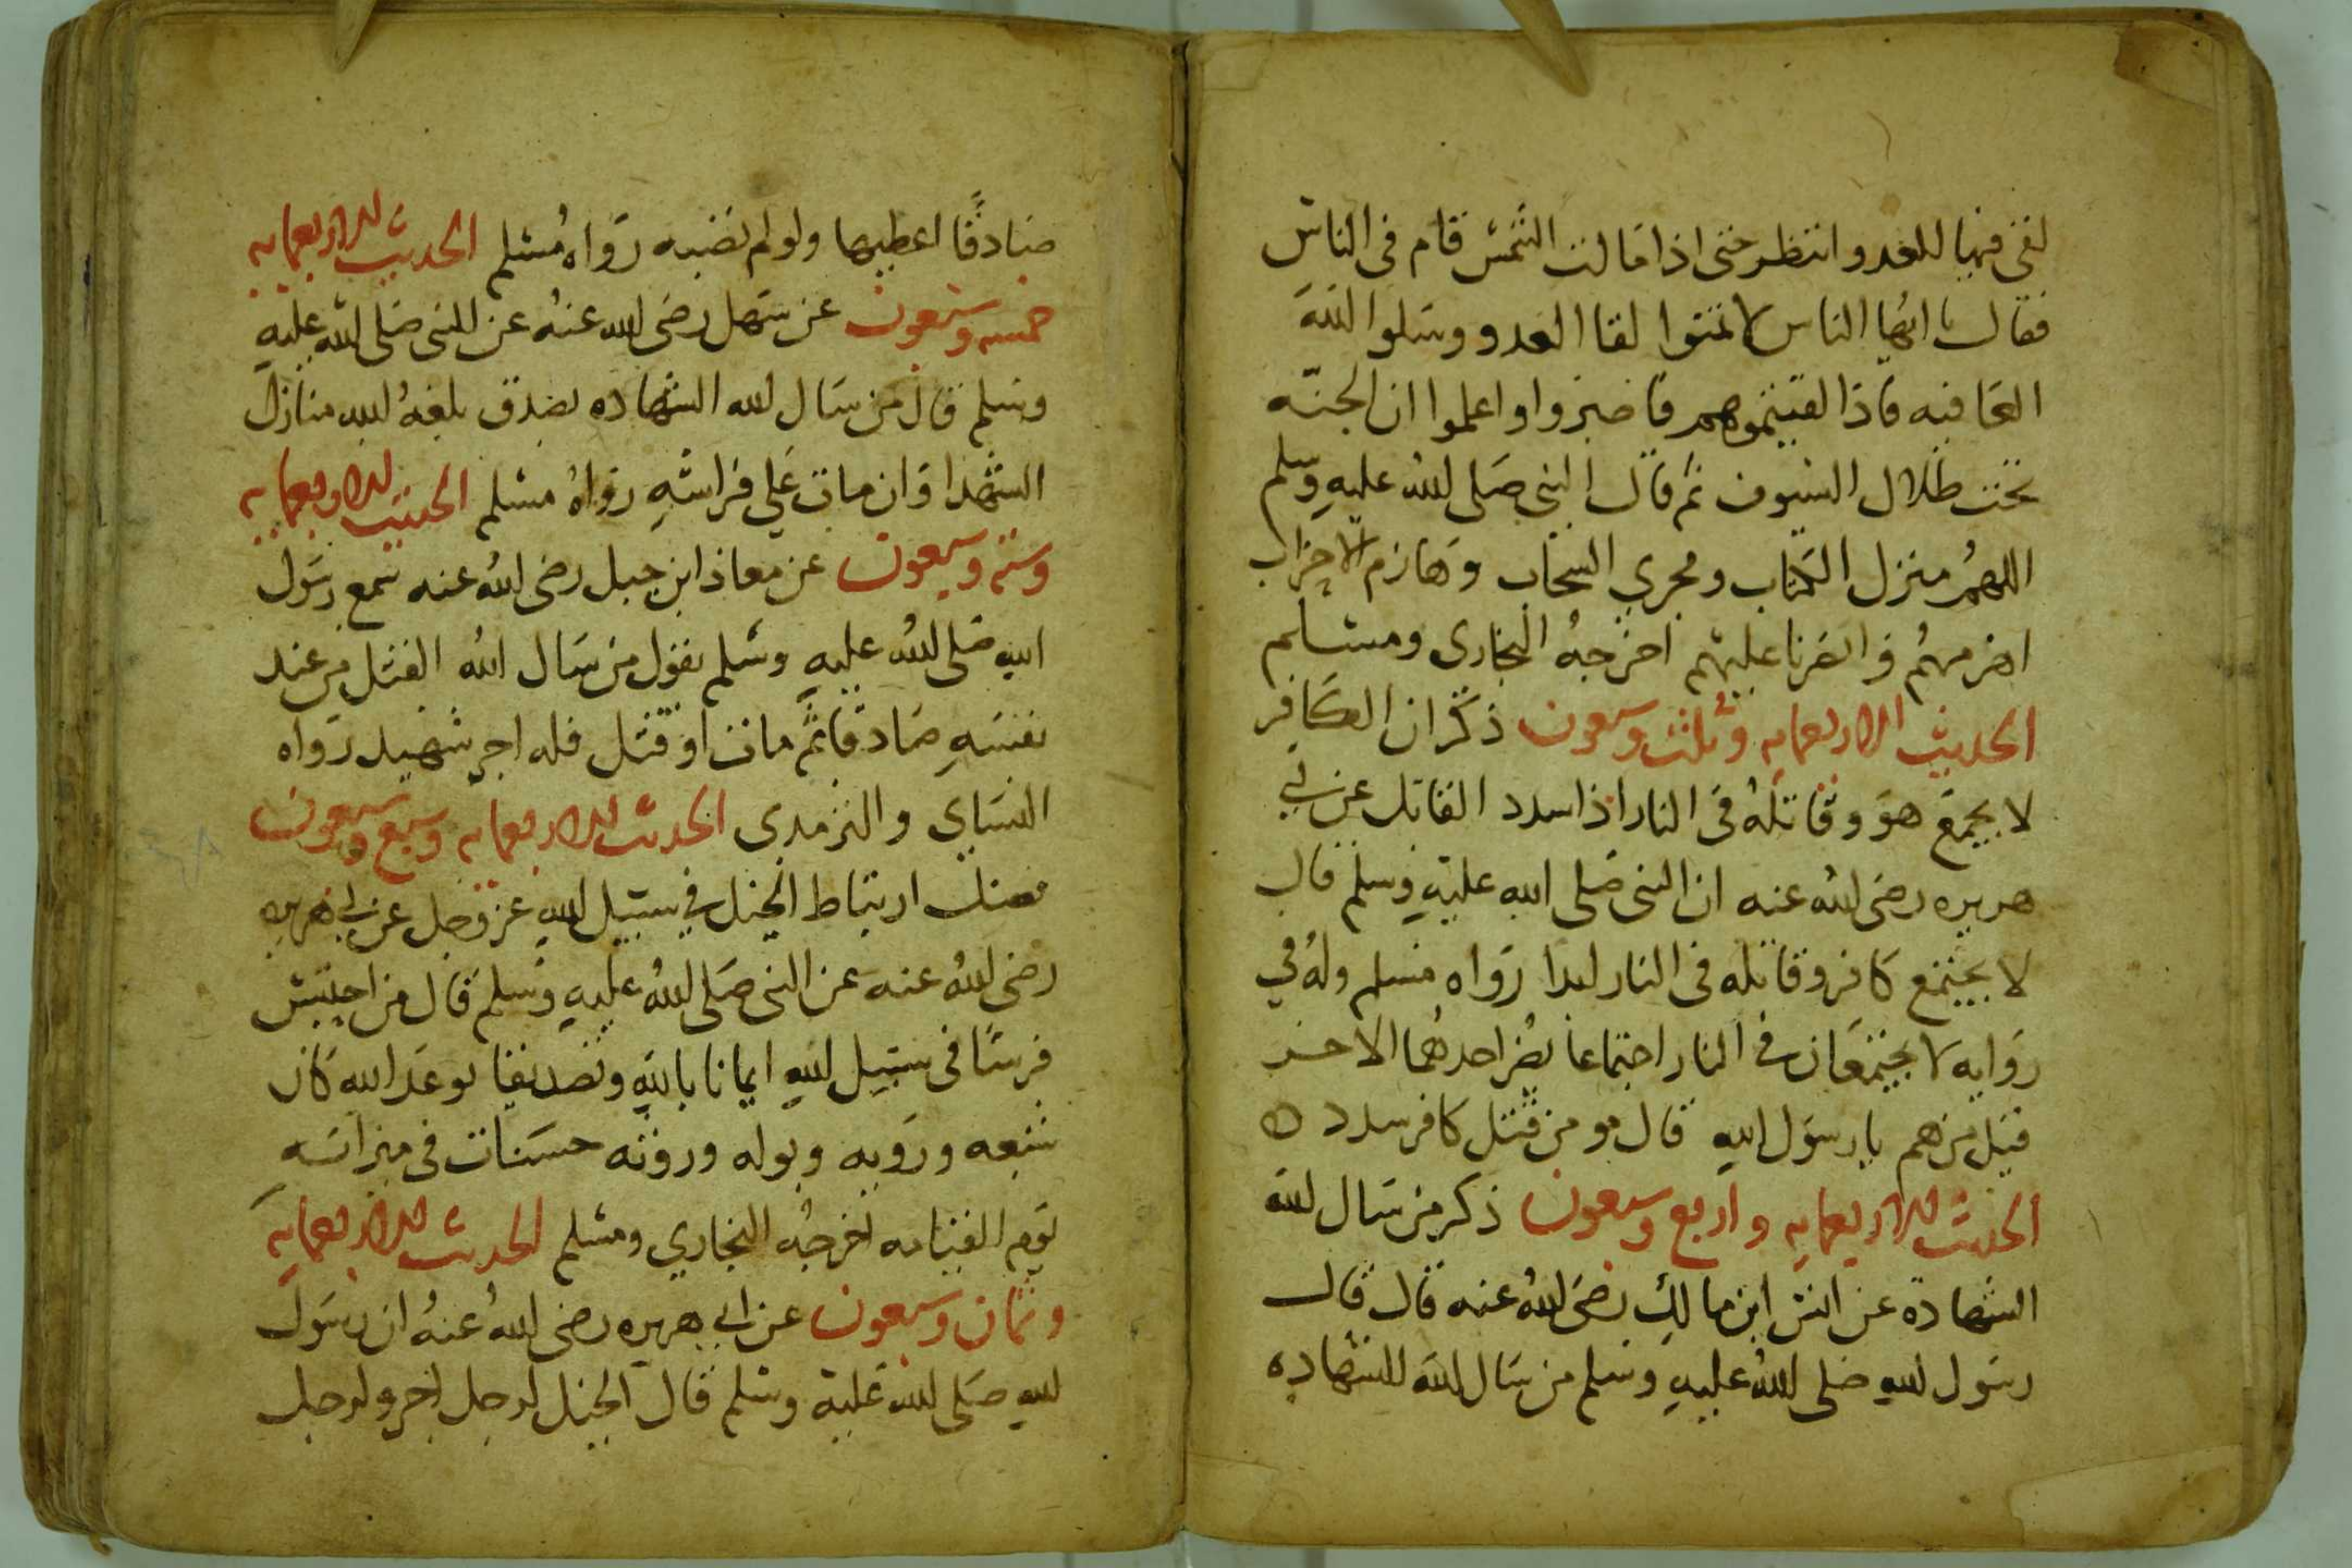 لقى فيها العدو انتظر حتى اذا مالت الشمس قام فى الناس
فقال يا ايها الناس لا تمنوا لقا العدو وسلوا الله
العافيه فاذا لقيتموهم فاصبروا واعلموا ان الجنه
تحت ظلال السيوف ثم قال النبى صلى الله عليه وسلم
اللهم منزل الكتاب ومجري السحاب وهازم الاحزاب
اهزمهم وانصرنا عليهم اخرجه البخارى ومسلم
الحديث الاربعمايه وثلث وسبعون ذكر ان الكافر
لا يجمع هو وقاتله فى النار اذا سدد القاتل عن ابي
هريره رضى الله عنه ان النبى صلى الله عليه وسلم قال
لا يجتمع كافر وقاتله فى النار ابدا رواه مسلم وله في
روايه لا يجتمعان فى النار اجتماعا يضر احدهما الاخر
قيل من هم يا رسول الله قال مومن قتل كافر سدد
الحديث الاربعمايه واربع وسبعون ذكر من سال الله
الشهادة عن انس ابن مالك رضى الله عنه قال قال
رسول الله صلى الله عليه وسلم من سال الله الشهاده
صادقًا اعطيها ولو لم تصبه رواه مسلم الحديث الاربعمايه
خمسه وسبعون عن سهل رضى الله عنه عن النبى صلى الله عليه
وسلم قال من سال الله الشهاده بصدق بلغه الله منازل
الشهدا وان مات على فراشه رواه مسلم الحديث الاربعمايه
وسته وسبعون عن معاذ ابن جبل رضى الله عنه سمع رسول
الله صلى الله عليه وسلم يقول من سال الله القتل من عند
نفسه صادقا ثم مات او قتل فله اجر شهيد رواه
النساي والترمدى الحديث الاربعمايه وسبع وسبعون
فضل ارتباط الخيل في سبيل الله عز وجل عن ابي هريره
رضى الله عنه عن النبى صلى الله عليه وسلم قال من احتبس
فرسًا فى سبيل الله ايمانا بالله وتصديقا بوعد الله كان
شبعه وروبه وبوله وروثه حسنات فى ميزانه
يوم القيامه اخرجه البخاري ومسلم الحديث الاربعمايه
وثمان وسبعون عن ابي هريره رضى الله عنه ان رسول
الله صلى الله عليه وسلم قال الخيل لرجل اجر ولرجل